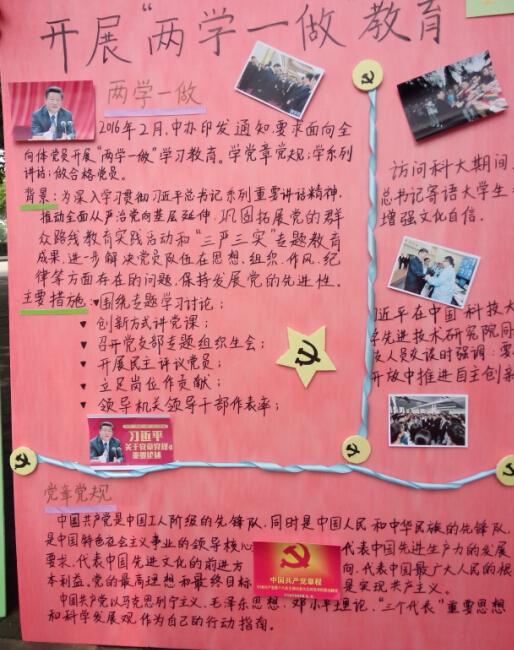 开展“两学一做”教育
两学一做
2016年2月,中办印发通知,要求面向全
向体党员开展“两学一做”学习教育。学党章党规;学系列
讲话;做合格党员。
背景:为深入学习贯彻习近平总书记系列重要讲话精神,
推动全面从严治党向基层延伸,巩固拓展党的群
众路线教育实践活动和“三严三实”专题教育
成果,进一步解决党员队伍在思想、组织、作风、纪
律等方面存在的问题,保持发展党的先进性。
主要措施:▼围绕专题学习讨论;
▼创新方式讲党课;
▼召开党支部专题组织生会;
▼开展民主评议党员;
▼立足岗位作贡献;
▼领导机关领导干部作表率;
习近平
关于党章党规
重要论述
访问科大期间,
总书记寄语大学生
增强文化自信.
近平在中国科技大
学先进技术研究院同
人员交谈时强调:要
开放中推进自主创新
党章党规
中国共产党是中国工人阶级的先锋队,同时是中国人民和中华民族的先锋队,
是中国特色社会主义事业的领导核心 代表中国先进生产力的发展
要求,代表中国先进文化的前进方 向,代表中国最广大人民的根
本利益.党的最高理想和最终目标 是实现共产主义。
中国共产党章程
中国共产党以马克思列宁主义,毛泽东思想,邓小平理论,“三个代表”重要思想
和科学发展观,作为自己的行动指南。